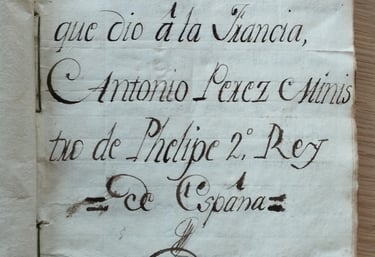 que dio â la Francia,
Antonio Perez Minis
tro de Phelipe 2.º Rey
= de España =